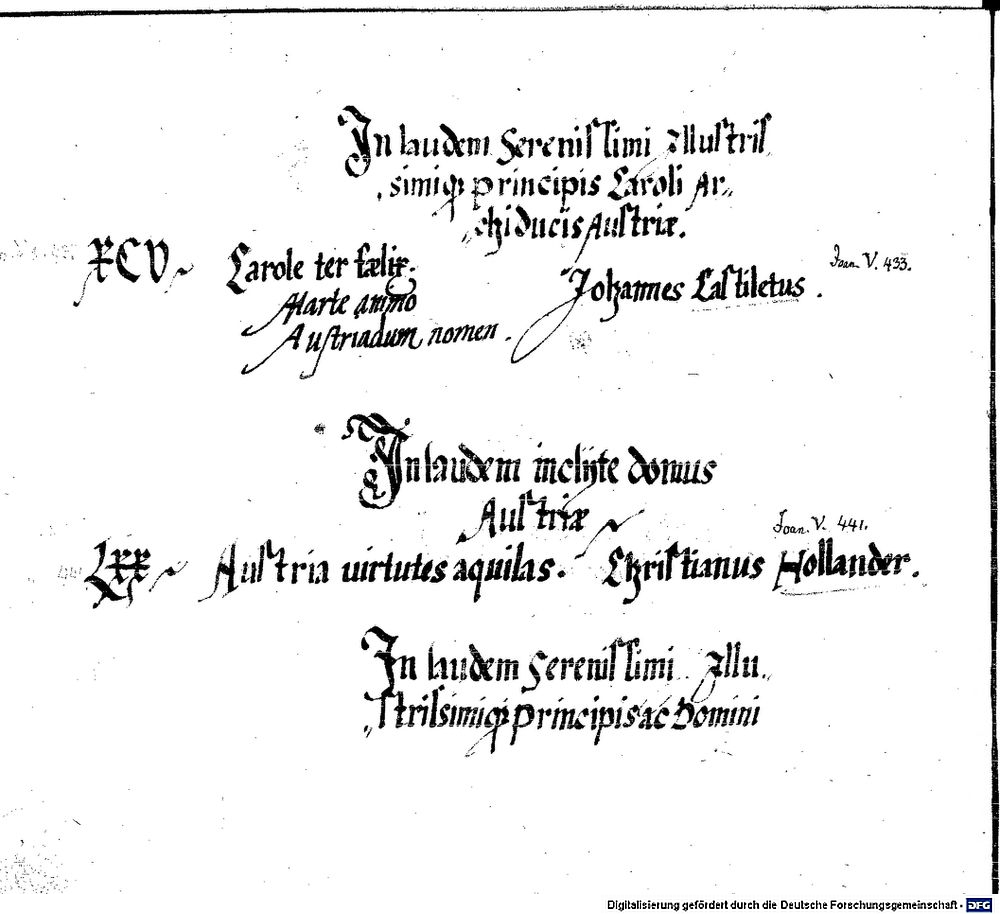 In laudem Serenissimi Illustris
simiq; principis Caroli Ar„
„chiducis Austriæ.
XCV Carole ter fælix. Johannes Castiletus. Joan. V. 433.
Marte animo
Austriadum nomen.
In laudem inclyte domus
Austriæ
Joan. V. 441.
LXX Austria uirtutes aquilas. Christianus Hollander.
In laudem Serenissimi Illu„
„strissimiq; principis ac Domini
Digitalisierung gefördert durch die Deutsche Forschungsgemeinschaft - DFG